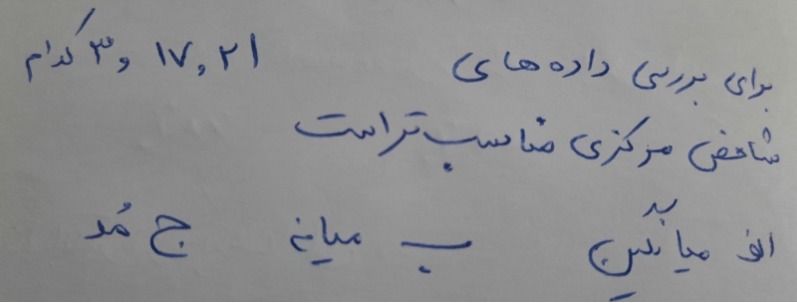 برای بررسی داده های ۲۱ و ۱۷ و ۳ کدام
شاخص مرکزی مناسب تر است
الف میانگین ب میانه ج مُد